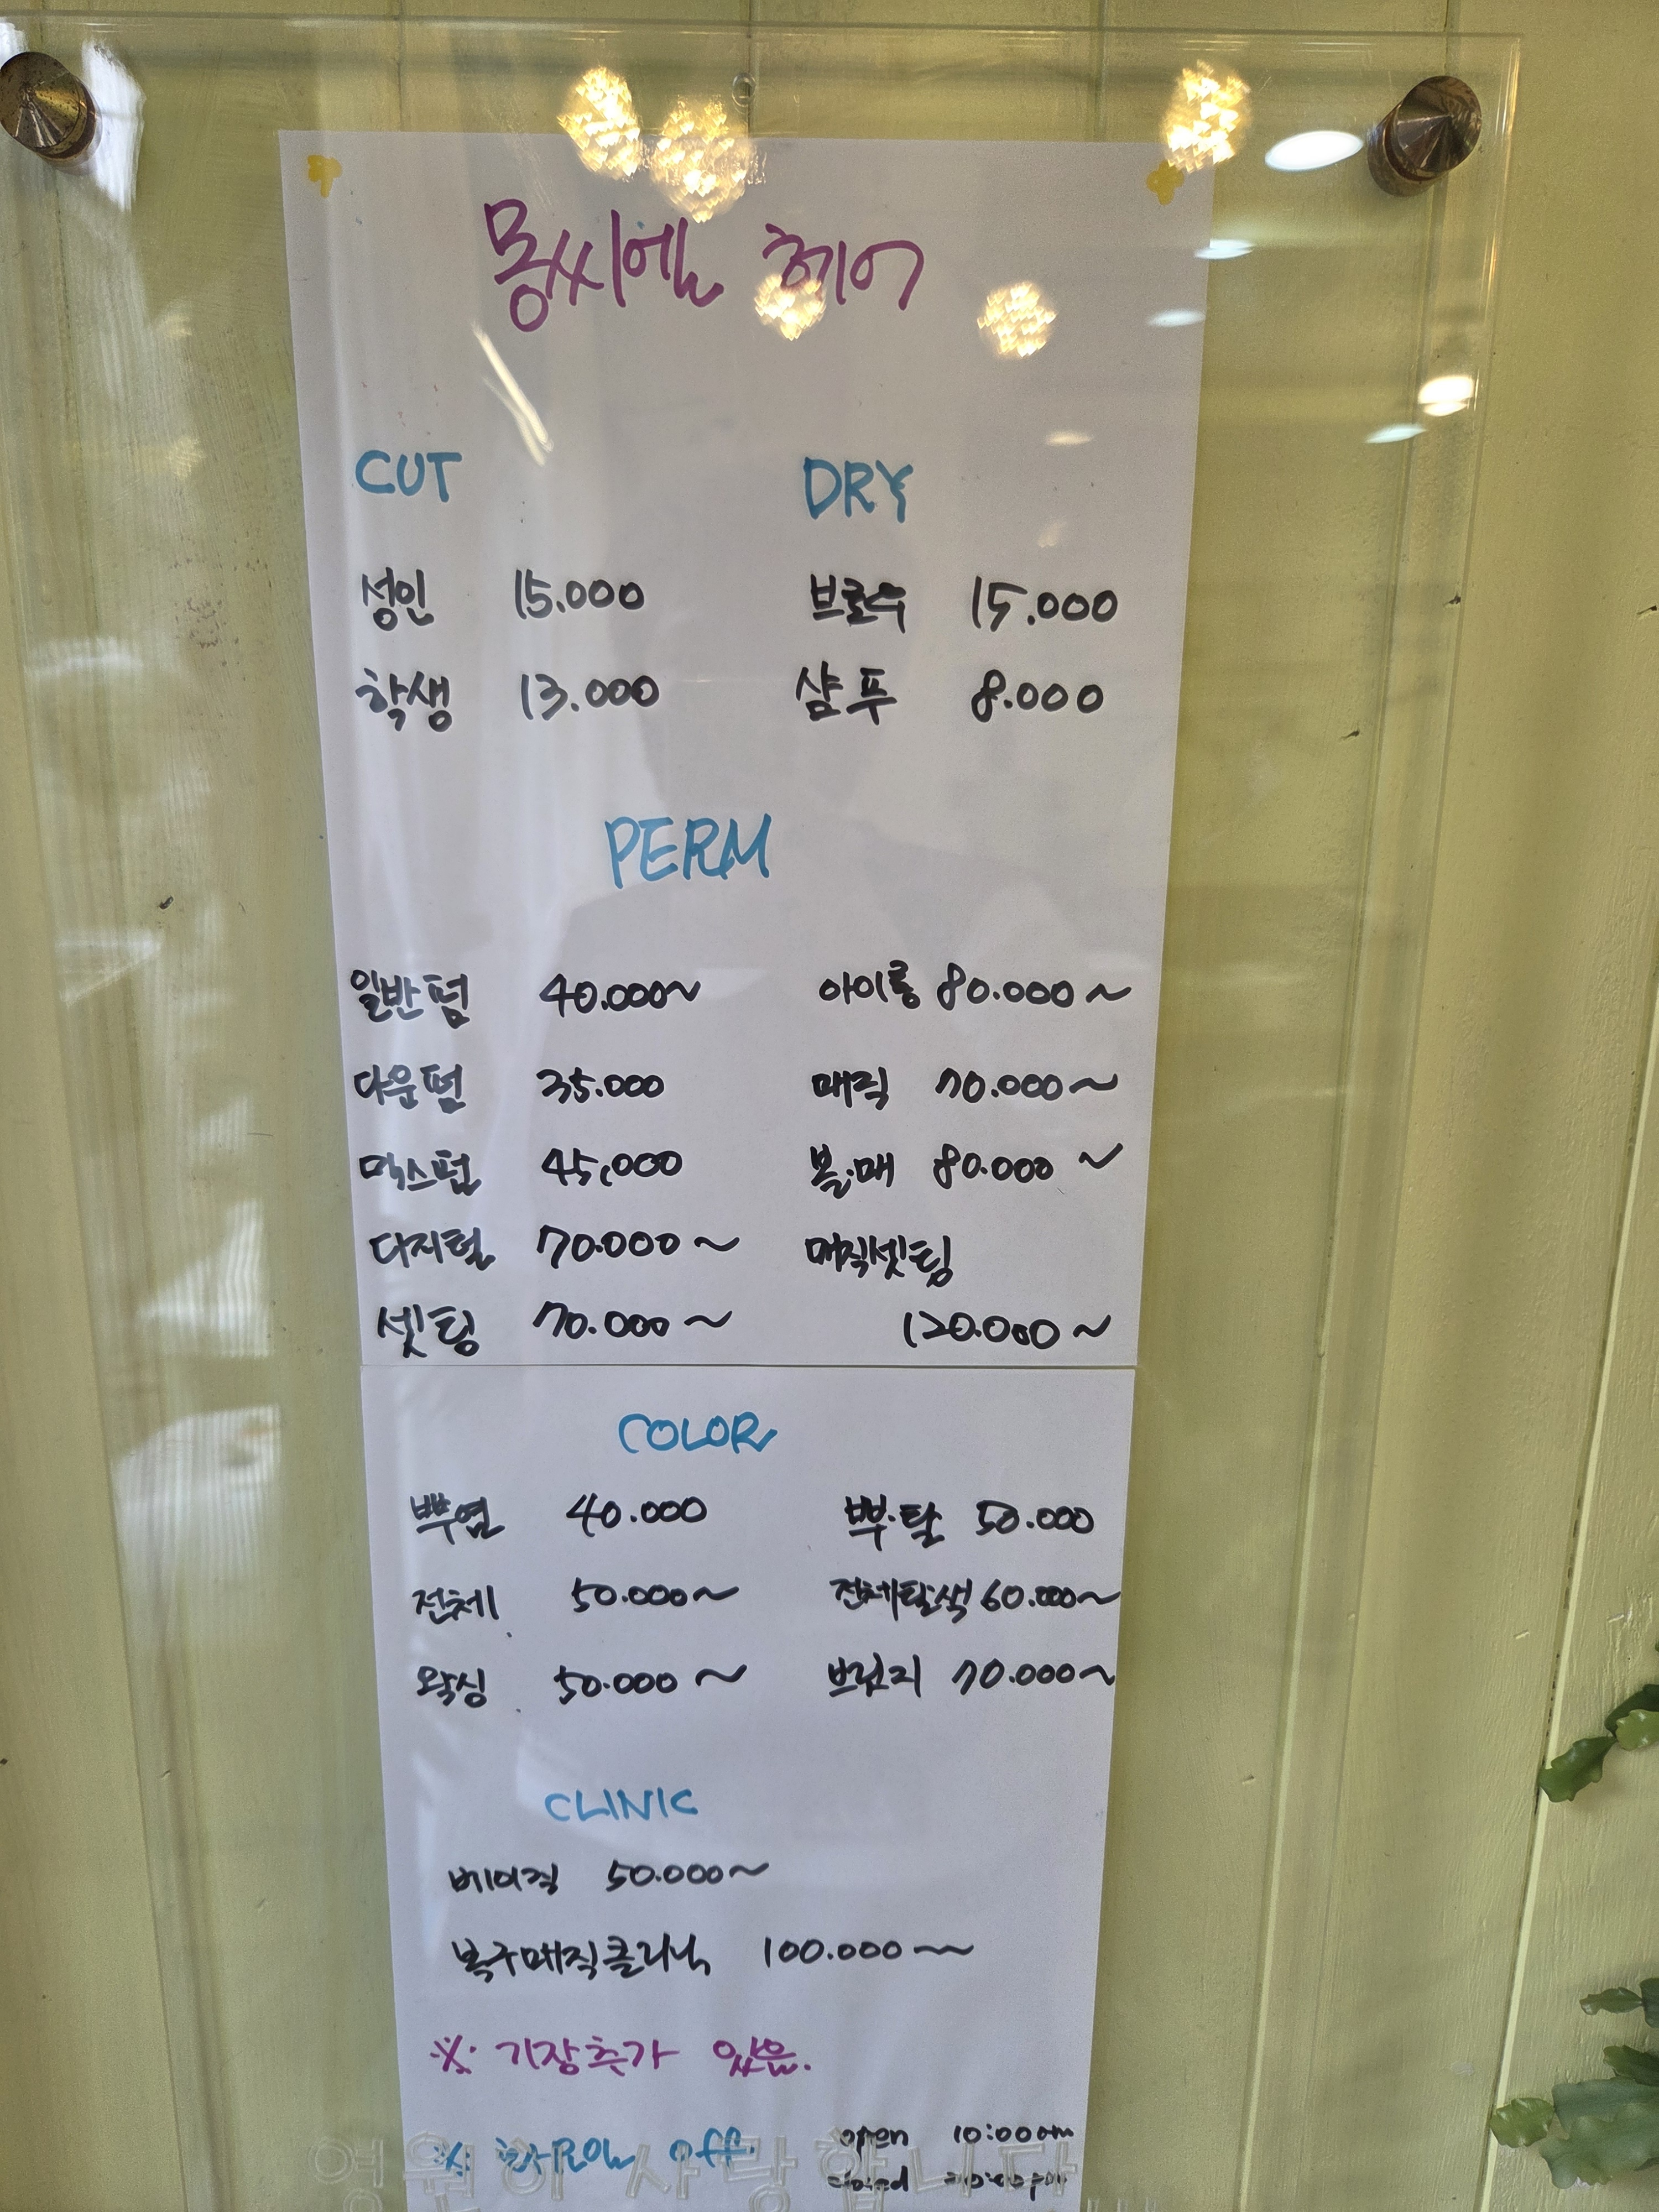 몽씨엘 헤어
CUT
성인 15.000
학생 13.000
DRY
브로우 15.000
샴푸 8.000
PERM
일반펌 40.000~
다운펌 35.000
믹스펌 45,000
디지털 70.000~
셋팅 70.000~
아이롱 80.000~
매직 70.000~
볼.매 80.000~
매직셋팅
120.000~
COLOR
뿌염 40.000
전체 50.000~
왁싱 50.000~
뿌.탈 50.000
전체탈색 60.000~
브릿지 70.000~
CLINIC
베이직 50.000~
복구매직클리닉 100.000~
※ 기장추가 있음.
off.
open 10:00am
closed
영원히 사랑합니다